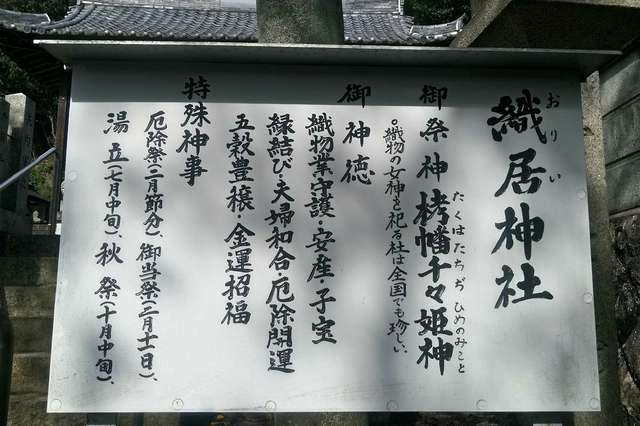 織居神社
おりい
御祭神 栲幡千々姫神
たくはたちぢひめのみこと
。織物の女神を祀る社は全国でも珍しい。
御神徳
織物業守護・安産・子宝
縁結び・夫婦和合厄除開運
五穀豊穣・金運招福
特殊神事
厄除祭(二月節分)、御当祭(二月十一日)、
湯立(七月中旬)秋祭(十月中旬)、